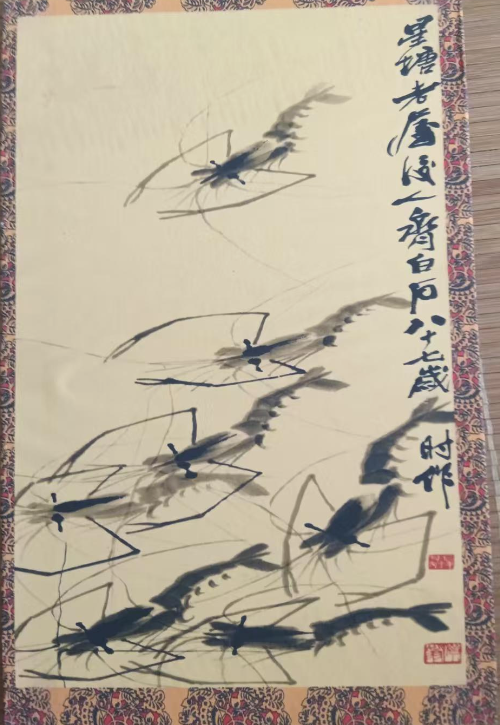 星塘老屋后人齊白石八十七歲
时作